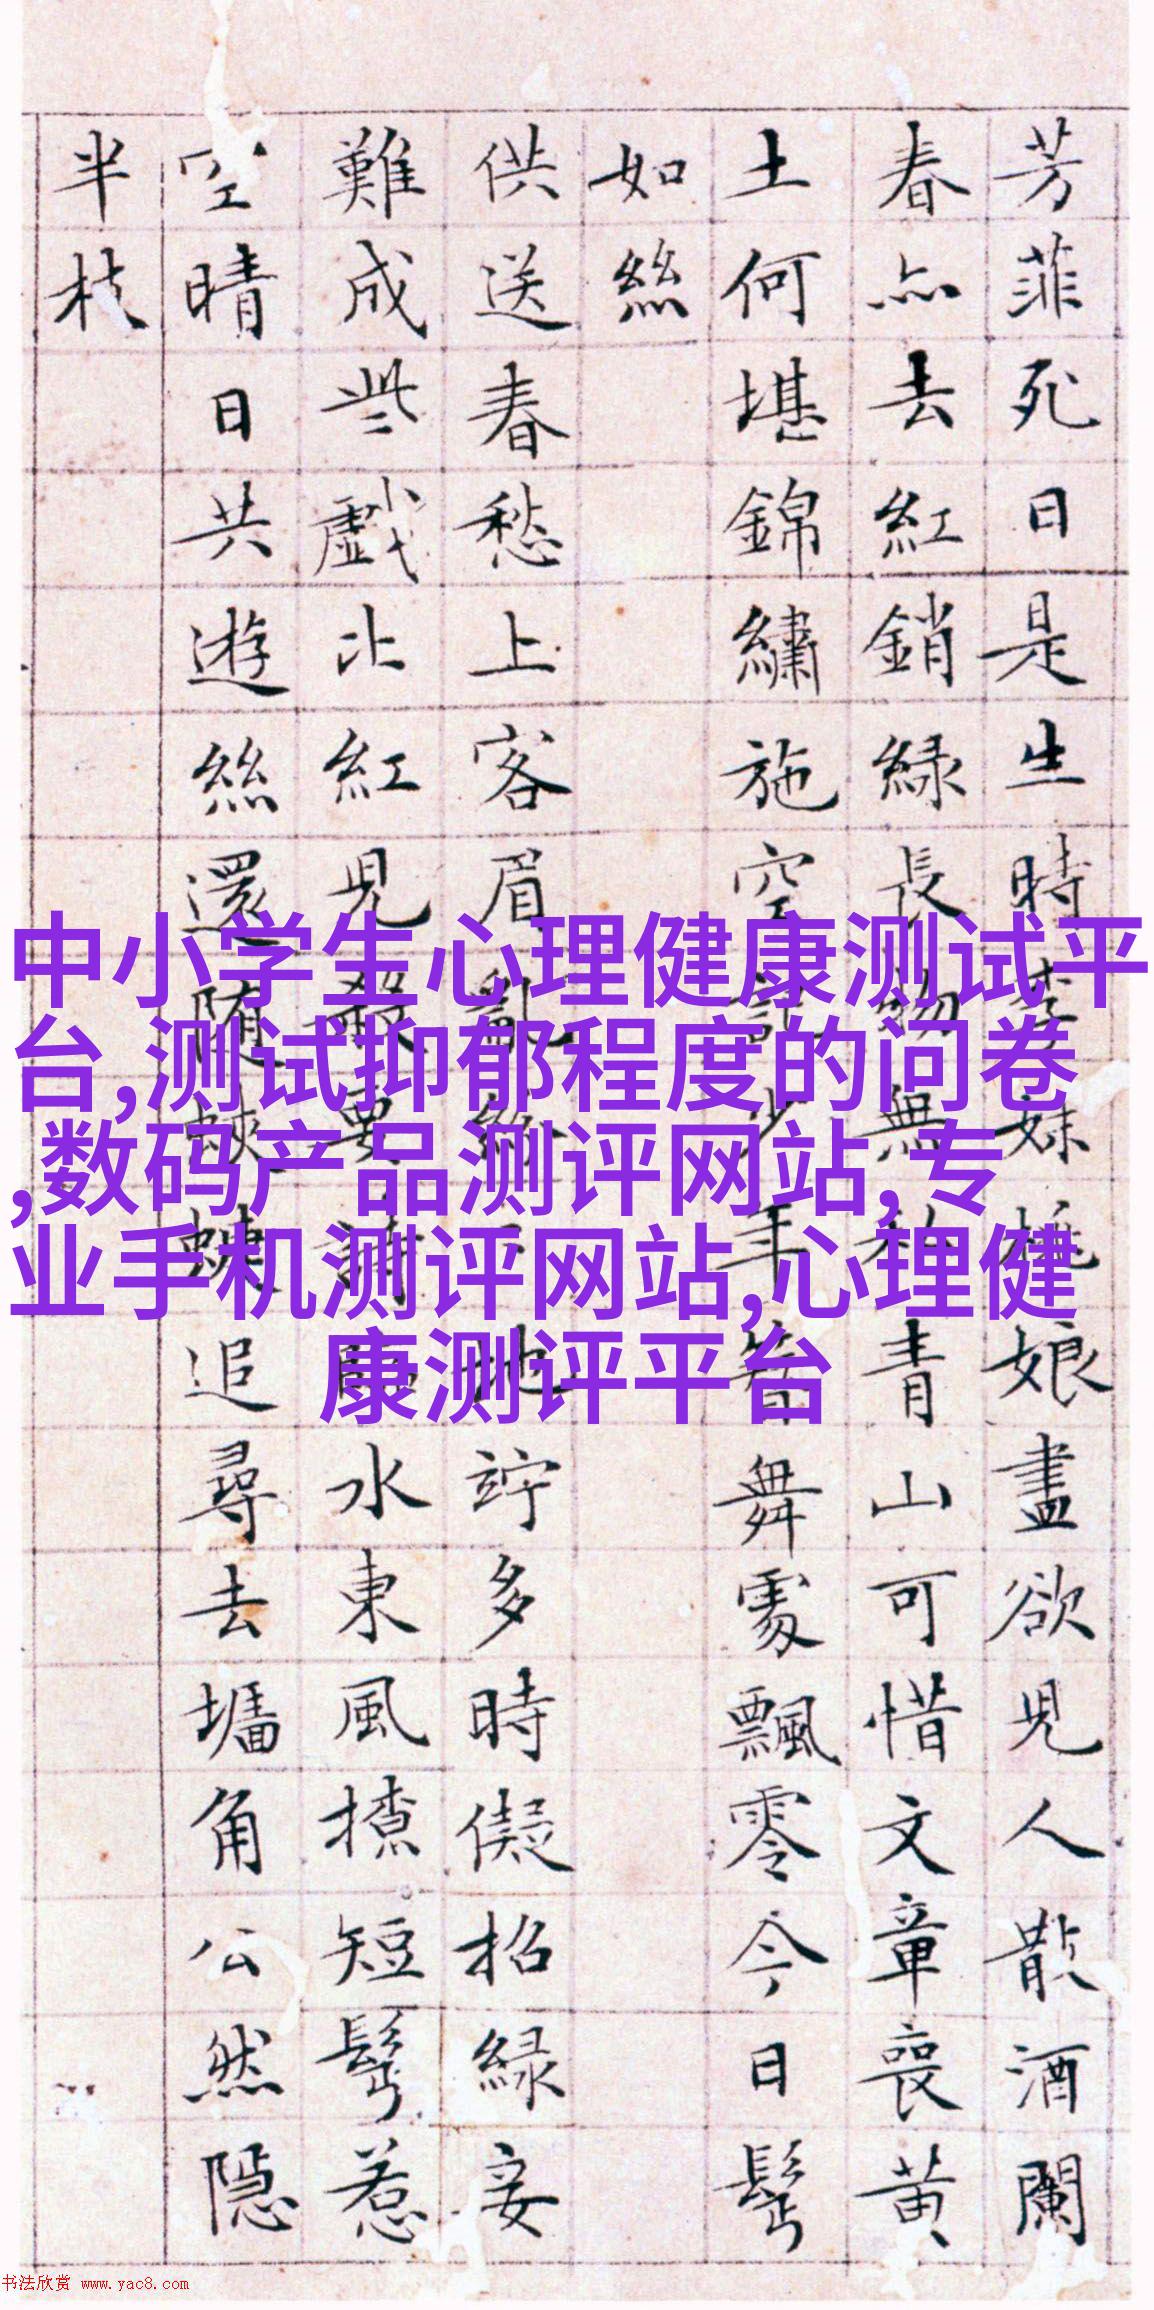 芳菲死日是生時李妹桃娘盡欲兒人散酒闌
春亦去紅銷綠長物無私青山可惜文章喪黃
土何堪錦繡施空記少年簪舞處飄零今日鬢
如絲
供送春愁上客眉亂紛紛地竚多時儗招綠妾
難成些戲比紅兒殺要詩臨水東風撩短鬢惹
空晴日共遊絲還隨蛺蝶追尋去墻角公然隱
半枝
中小学生心理健康测试平
台,测试抑郁程度的问卷
,数码产品测评网站,专
业手机测评网站,心理健
康测评平台
书法欣赏 www.yac8.com